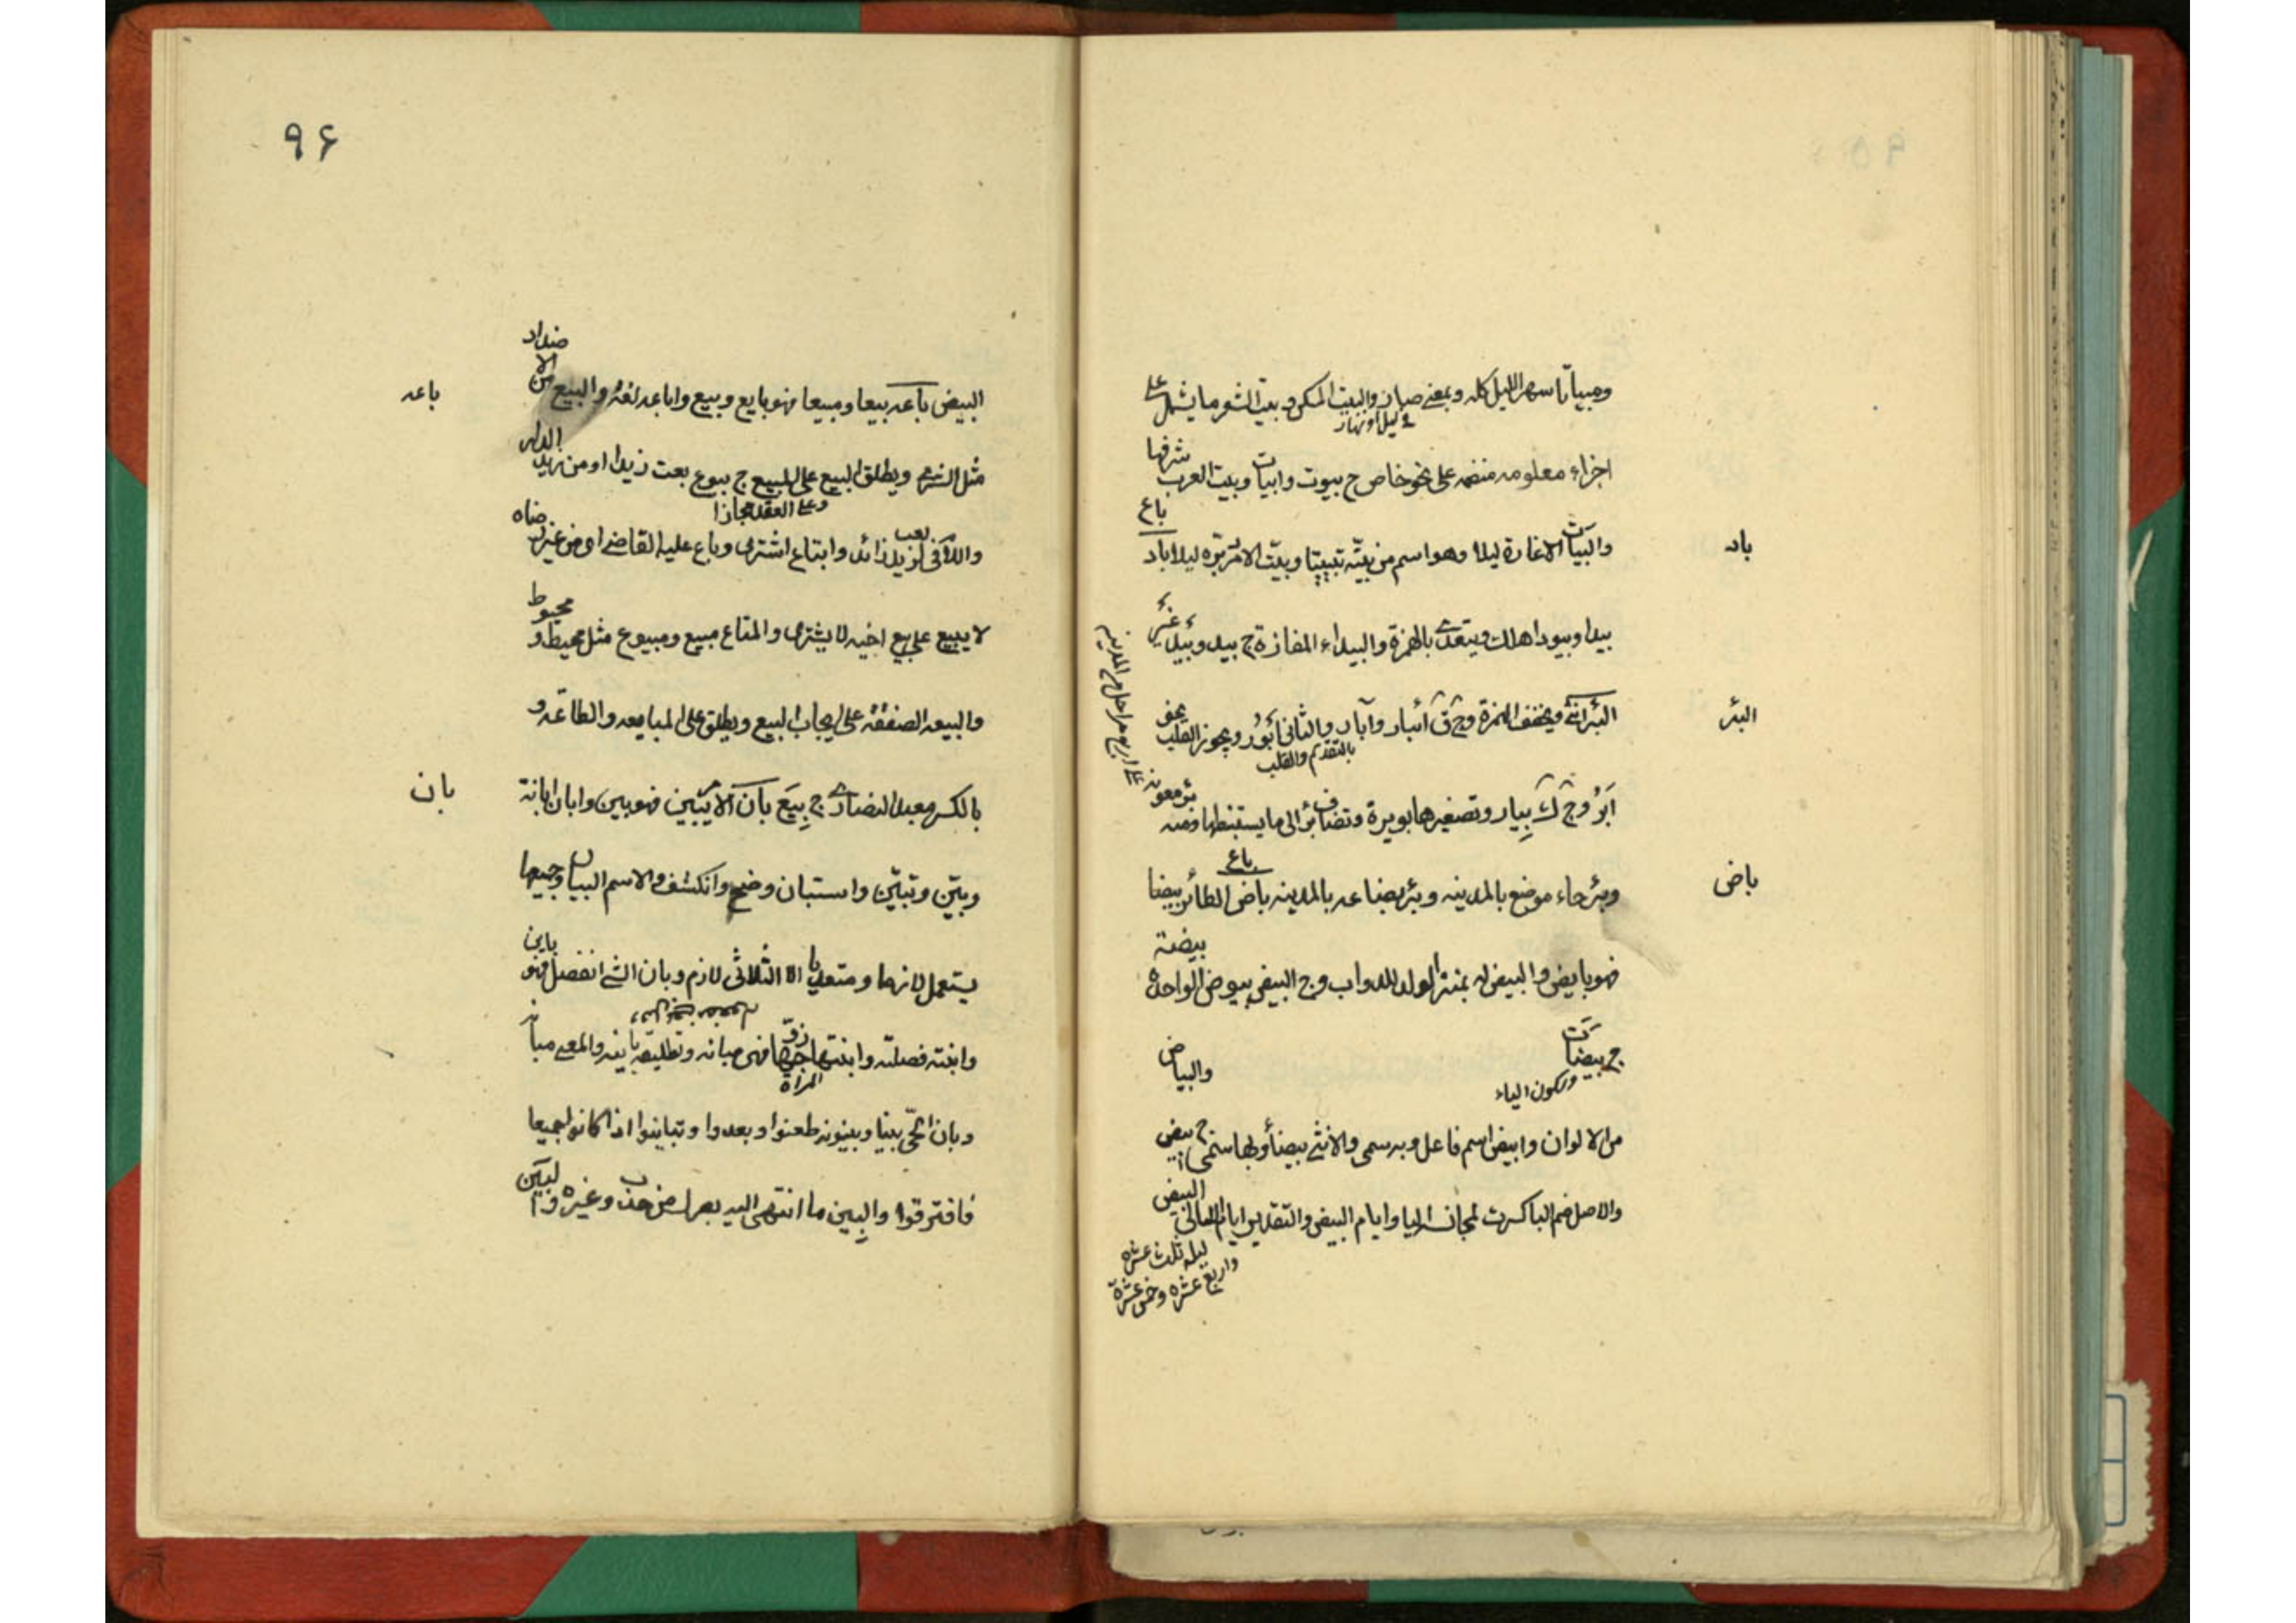 ومبياتا سهر الليل كله وبمعنى صار والبيت المسكن وبيت الشعر ما يشمل على
ليلا او نهارا
اجزاء معلومه منضمه على نحو خاص ج بيوت وابيات وبيت العرب شرفها
باع
باد
والبيات الاغارة ليلا وهو اسم من بيته تبييتا وبيت الامر دبره ليلا باد
بيدا وبيودا هلك ويتعدى بالهمزة والبيداء المفازة ج بيد وبيد
البئر
البئر انثى ويخفف الهمزة وج ق أبئار وآبار والثانى أبؤر ويجوز القلب
بالتقديم والقلب
أبر وج ك بيار وتصغيرها بويرة وتضاف بئر الى ما يستنبطها ومنه
بئر معونه
على اربع مراحل من المدينه
باع
باض
وبئر حاء موضع بالمدينه وبئر بضاعه بالمدينه باض الطائر بيضا
فهو بايض والبيض له بمنزله الولد للدواب وج البيض بيوض الواحده بيضة
ج بيضات
وسكون الياء
والبياض
من الالوان وابيض اسم فاعل وبه سمى والانثى بيضاء وبها سمى ج بيض
والاصل ضم البا كسرت لمجانسه اليا وايام البيض والتقدير ايام الليالى البيض
ليله ثلث عشره
واربع عشره وخمس عشرة
۹۶
باعه
البيض باعه بيعا ومبيعا فهو بايع وبيع واباعه لغه والبيع من الاضداد
مثل الشرى ويطلق البيع على المبيع ج بيوع بعت زيدا او من زيد الدار
وعلى العقد مجازا
والآتى لزيد زائد وابتاع اشترى وباع عليه القاضى اى من غير رضاه
لا يبيع على بيع اخيه لا يشترى والمتاع مبيع ومبيوع مثل محيط و محيوط
والبيعه الصفقه على ايجاب البيع ويطلق على المبايعه والطاعه و
بان
بالكسر معبد النصارى ج بيع بان الامر يبين فهو بين وابان ابانة
وبين وتبين واستبان وضح وانكشف والاسم البيان وجميعها
يستعمل لازما ومتعديا الا الثلاثى لازم وبان الشى انفصل فهو باين
وابنته فصلته وابنتها زوجها فهى مبانه وتطليقه باينه والمعنى مبانه
المراة
وبان الحى بينا وبينونه ظعنوا وبعدوا وتباينوا اذا كانوا جميعا
فافترقوا والبين ما انتهى اليه بصرك من حدب وغيره